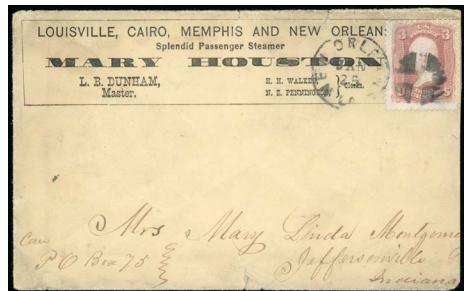 LOUISVILLE, CAIRO, MEMPHIS AND NEW ORLEANS
Splendid Passenger Steamer
MARY HOUSTON
L. B. DUNHAM,
Master.
H. H. WALKER,
N. Z. PENNINGTON,
Clerks.
NEW ORLEANS
JAN
25
LA
3 3
Mrs Mary Linda Montgom
Jeffersonville
Indiana
Care
PO Box 75